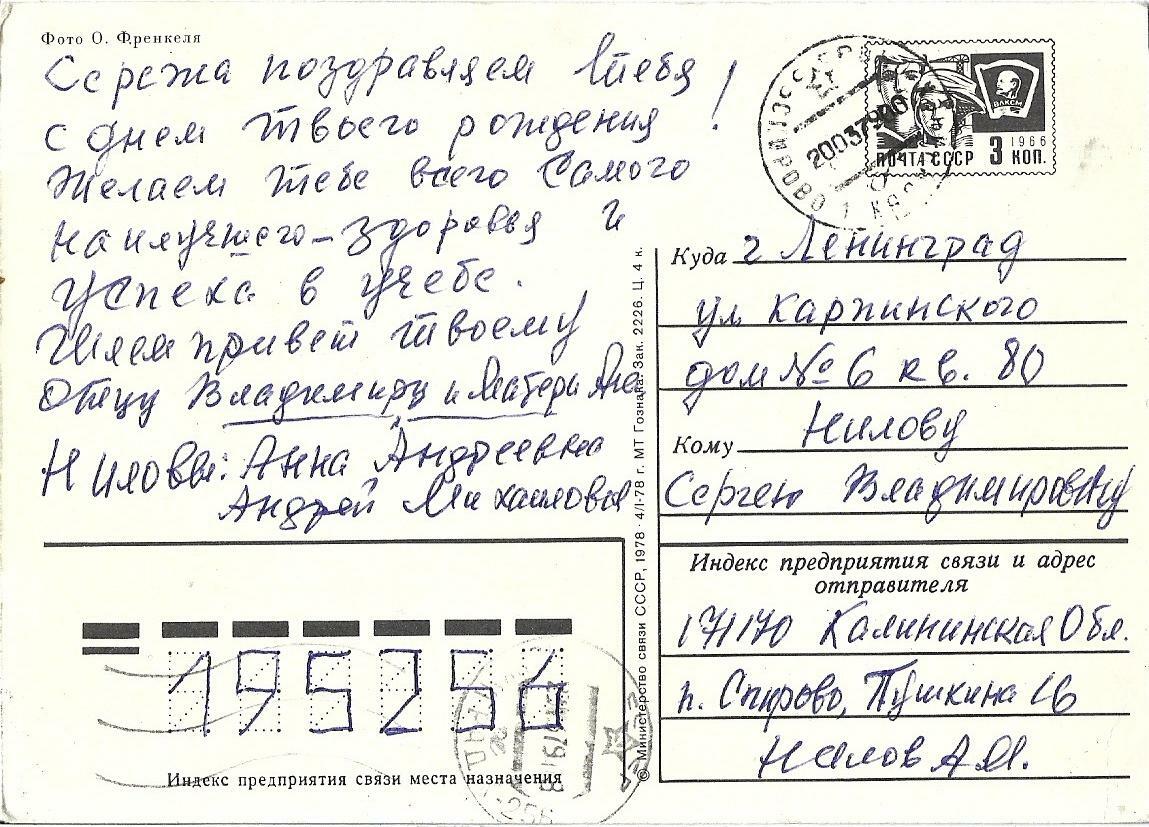 Фото О. Френкеля
Сережа поздравляем тебя
с днем твоего рождения !
Желаем тебе всего самого
наилучшего – здоровья и
успеха в учебе.
Шлем привет твоему
Отцу Владимиру и Матери
Ниловы: Анна Андреевна
Андрей Михайлович
ПОЧТА СССР 3 КОП.
1966
ВЛКСМ
СПИРОВО 1
200379
Куда г Ленинград
ул Карпинского
дом № 6 кв. 80
Кому Нилову
Сергею Владимировичу
Индекс предприятия связи и адрес
отправителя
171170 Калининская Обл.
п. Спирово, Пушкина 16
Нилов А.М.
© Министерство связи СССР, 1978 · 4/I-78 г. МТ Гознака. Зак. 2226. Ц. 4 к.
195256
Индекс предприятия связи места назначения